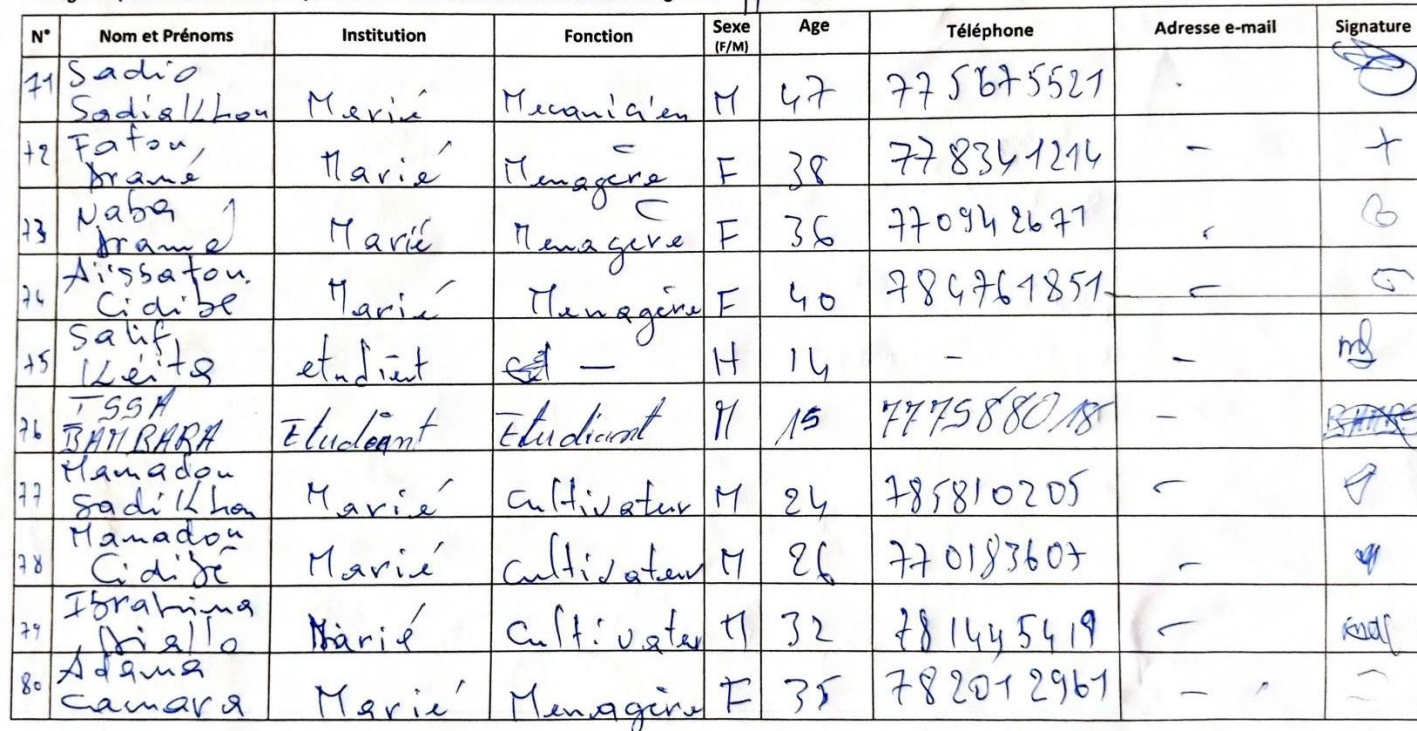 N° Nom et Prénoms Institution Fonction Sexe (F/M) Age Téléphone Adresse e-mail Signature
71 Sadio Sadiakhou Marié Mecanicien M 47 775675521
72 Fatou Dramé Marié Menagère F 38 778341214 - +
73 Naba Dramé Marié Menagere F 36 770942671
74 Aissatou Cidibé Marié Menagère F 40 784761851 -
75 Salif Keita etudient - H 14 - -
76 ISSA BAMBARA Etudeant Etudiant M 15 777588018 -
77 Mamadou Sadikhou Marié Cultivateur M 24 785810205 -
78 Mamadou Cidibé Marié Cultivateur M 26 770183607 -
79 Ibrahima Diallo Marié Cultivateu M 32 781445419 -
80 Adama Camara Marié Menagère F 35 782012961 -